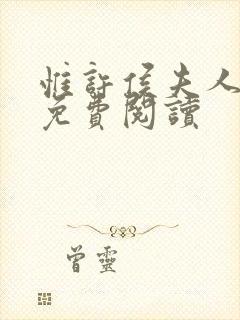 惟許侯夫人
免費閱讀
曾靈